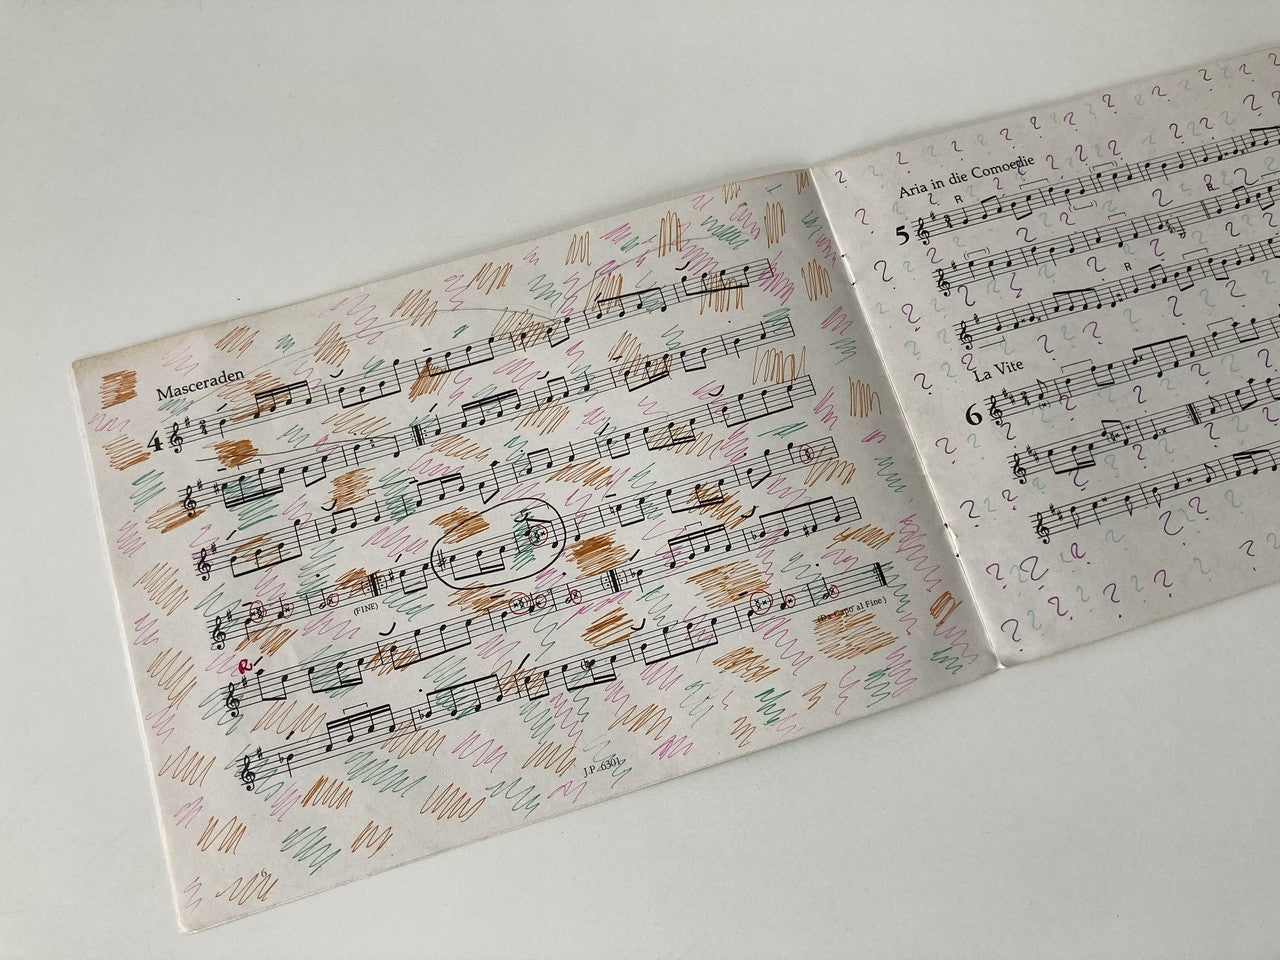 Masceraden
4
(FINE)
R
(Da Capo al Fine)
J.P. 6301
6
Aria in die Comoedie
R
5
R
R
La Vite
6